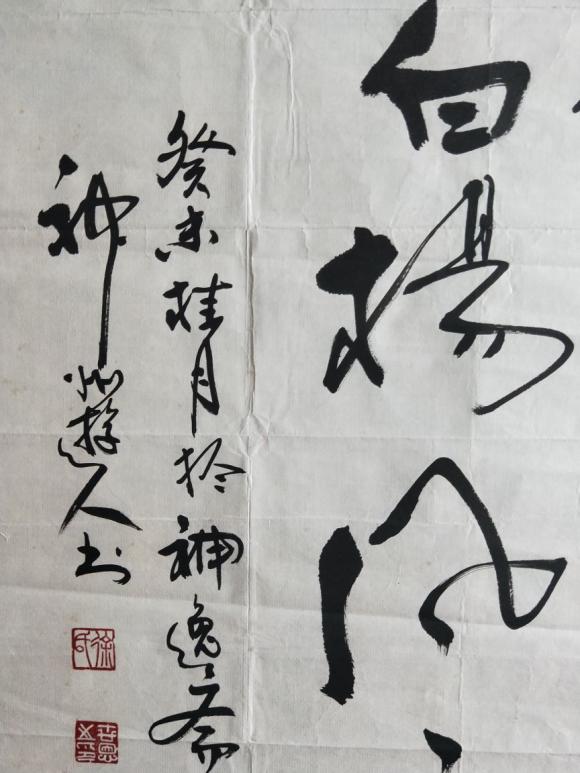 白楊
癸未桂月於神逸斋
神州遊人书
徐氏